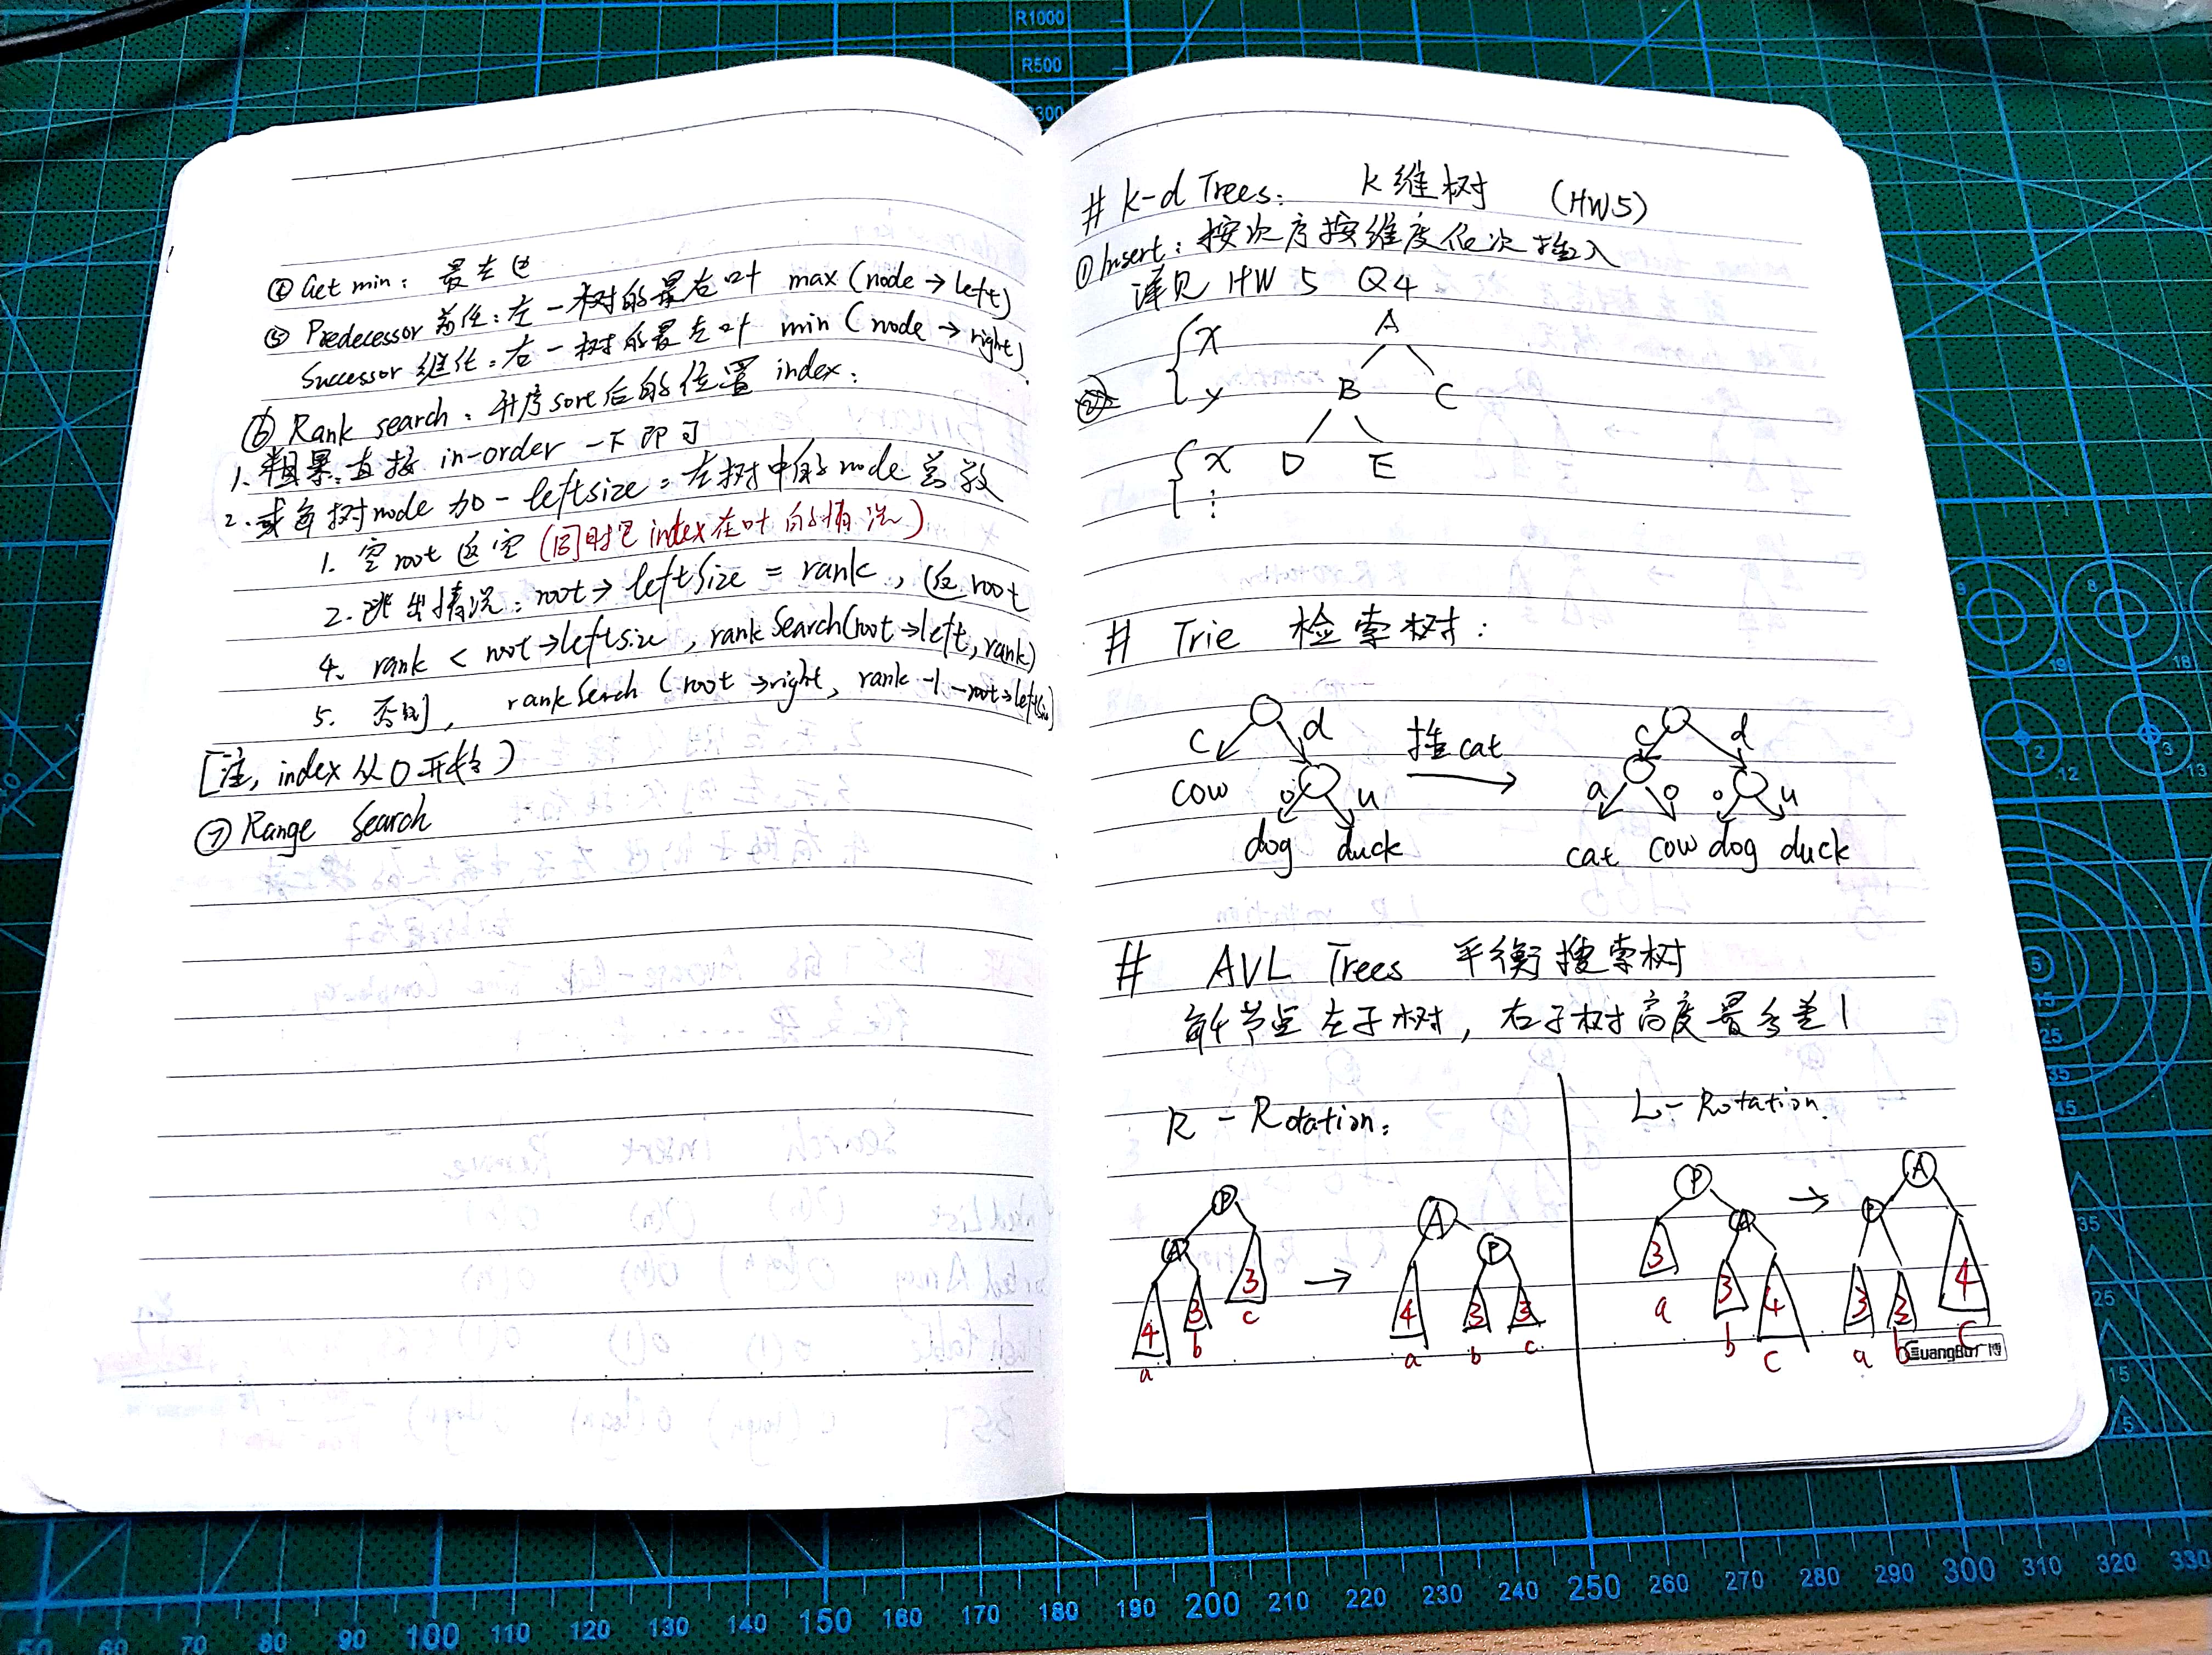 ④ Get min: 最左也
⑤ Predecessor 前任: 左一树的最右叶 max (node → left)
Successor 继任: 右一树的最左叶 min (node → right)
⑥ Rank search: 升序sort后的位置 index:
1. 粗暴: 直接 in-order 一下即可
2. 或每树node 加一 leftsize = 左树中的node 总数
1. 空root 返空 (同时是index在叶的情况)
2. 跳出情况: root → leftsize = rank, 返 root
4. rank < root → leftsize, rankSearch(root → left, rank)
5. 否则, rankSerch (root → right, rank -1 - root → leftsize)
[注, index 从0开始)
⑦ Range Search
# k-d Trees: k维树 (HW5)
① Insert: 按次序按维度依次插入
详见 HW 5 Q4
x A
y B C
x D E
⋮
# Trie 检索树:
c d 插cat c d
cow o u a o o u
dog duck cat cow dog duck
# AVL Trees 平衡搜索树
每个节点左子树, 右子树高度最多差1
R - Rotation: L - Rotation.
P A P A
A P A P
4 3 3 4 3 3 3 3 4 3 3 4
a b c a b c a b c a b c
GuangBo 广博
R1000
R500
300
50 60 70 80 90 100 110 120 130 140 150 160 170 180 190 200 210 220 230 240 250 260 270 280 290 300 310 320 330